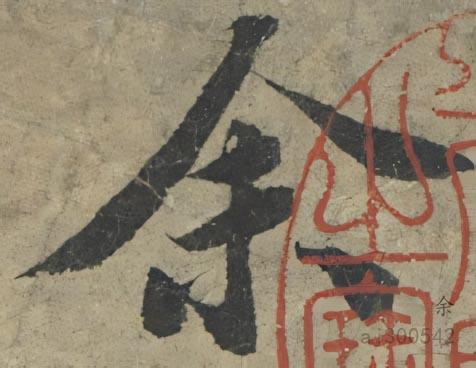 余
余
a1300542